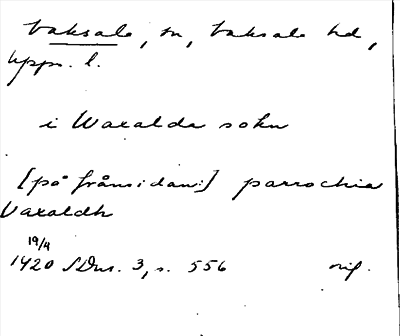 Vaksala, sn, Vaksala hd,
Uppn. l.
i Waxalda sokn
[på frånsidan:] parrochia
Vaxaldh
19/4
1420 SDns. 3, s. 556 orig.